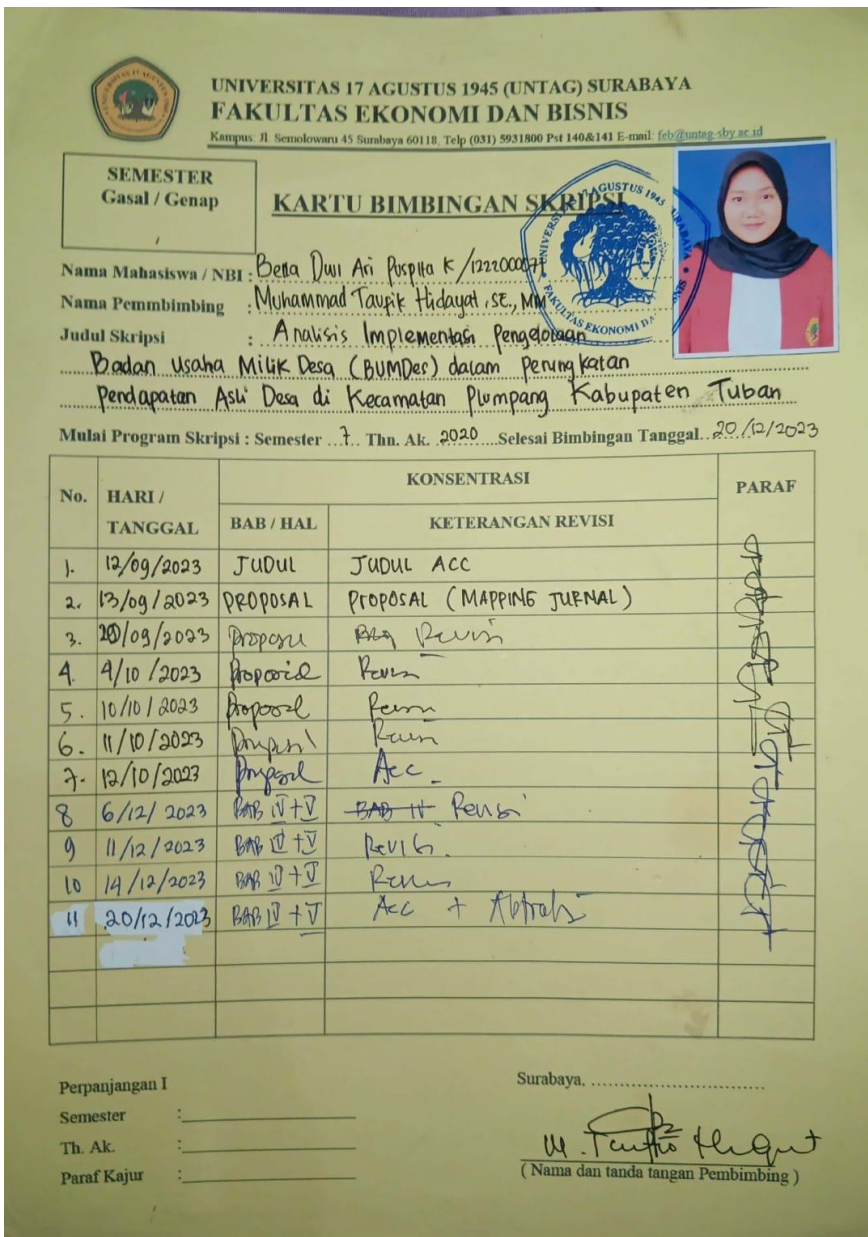 UNIVERSITAS 17 AGUSTUS 1945 (UNTAG) SURABAYA
FAKULTAS EKONOMI DAN BISNIS
Kampus: Jl. Semolowaru 45 Surabaya 60118, Telp (031) 5931800 Pst 140&141 E-mail: feb@untag-sby.ac.id
SEMESTER
Gasal / Genap
/
KARTU BIMBINGAN SKRIPSI
Nama Mahasiswa / NBI : Bella Dwi Ari Puspita K /
Nama Pemmbimbing : Muhammad Taufik Hidayat, SE., MM
Judul Skripsi : Analisis Implementasi Pengelolaan
Badan Usaha Milik Desa (BUMDes) dalam Peningkatan
Pendapatan Asli Desa di Kecamatan Plumpang Kabupaten Tuban
Mulai Program Skripsi : Semester 7 Thn. Ak. 2020 Selesai Bimbingan Tanggal 20/12/2023
No. HARI / TANGGAL KONSENTRASI PARAF
BAB / HAL KETERANGAN REVISI
1. 12/09/2023 JUDUL JUDUL ACC
2. 13/09/2023 PROPOSAL PROPOSAL (MAPPING JURNAL)
3. 20/09/2023 Proposal Revisi
4. 4/10/2023 Proposal Revisi
5. 10/10/2023 Proposal Revisi
6. 11/10/2023 Proposal Revisi
7. 12/10/2023 Proposal Acc
8 6/12/2023 BAB IV+V BAB IV Revisi
9 11/12/2023 BAB IV+V Revisi
10 14/12/2023 BAB IV+V Revisi
11 20/12/2023 BAB IV+V Acc + Abstraksi
Perpanjangan I
Semester :
Th. Ak. :
Paraf Kajur :
Surabaya,
M. Taufik Hidayat
( Nama dan tanda tangan Pembimbing )
UNIVERSITAS 17 AGUSTUS 1945 SURABAYA
FAKULTAS EKONOMI